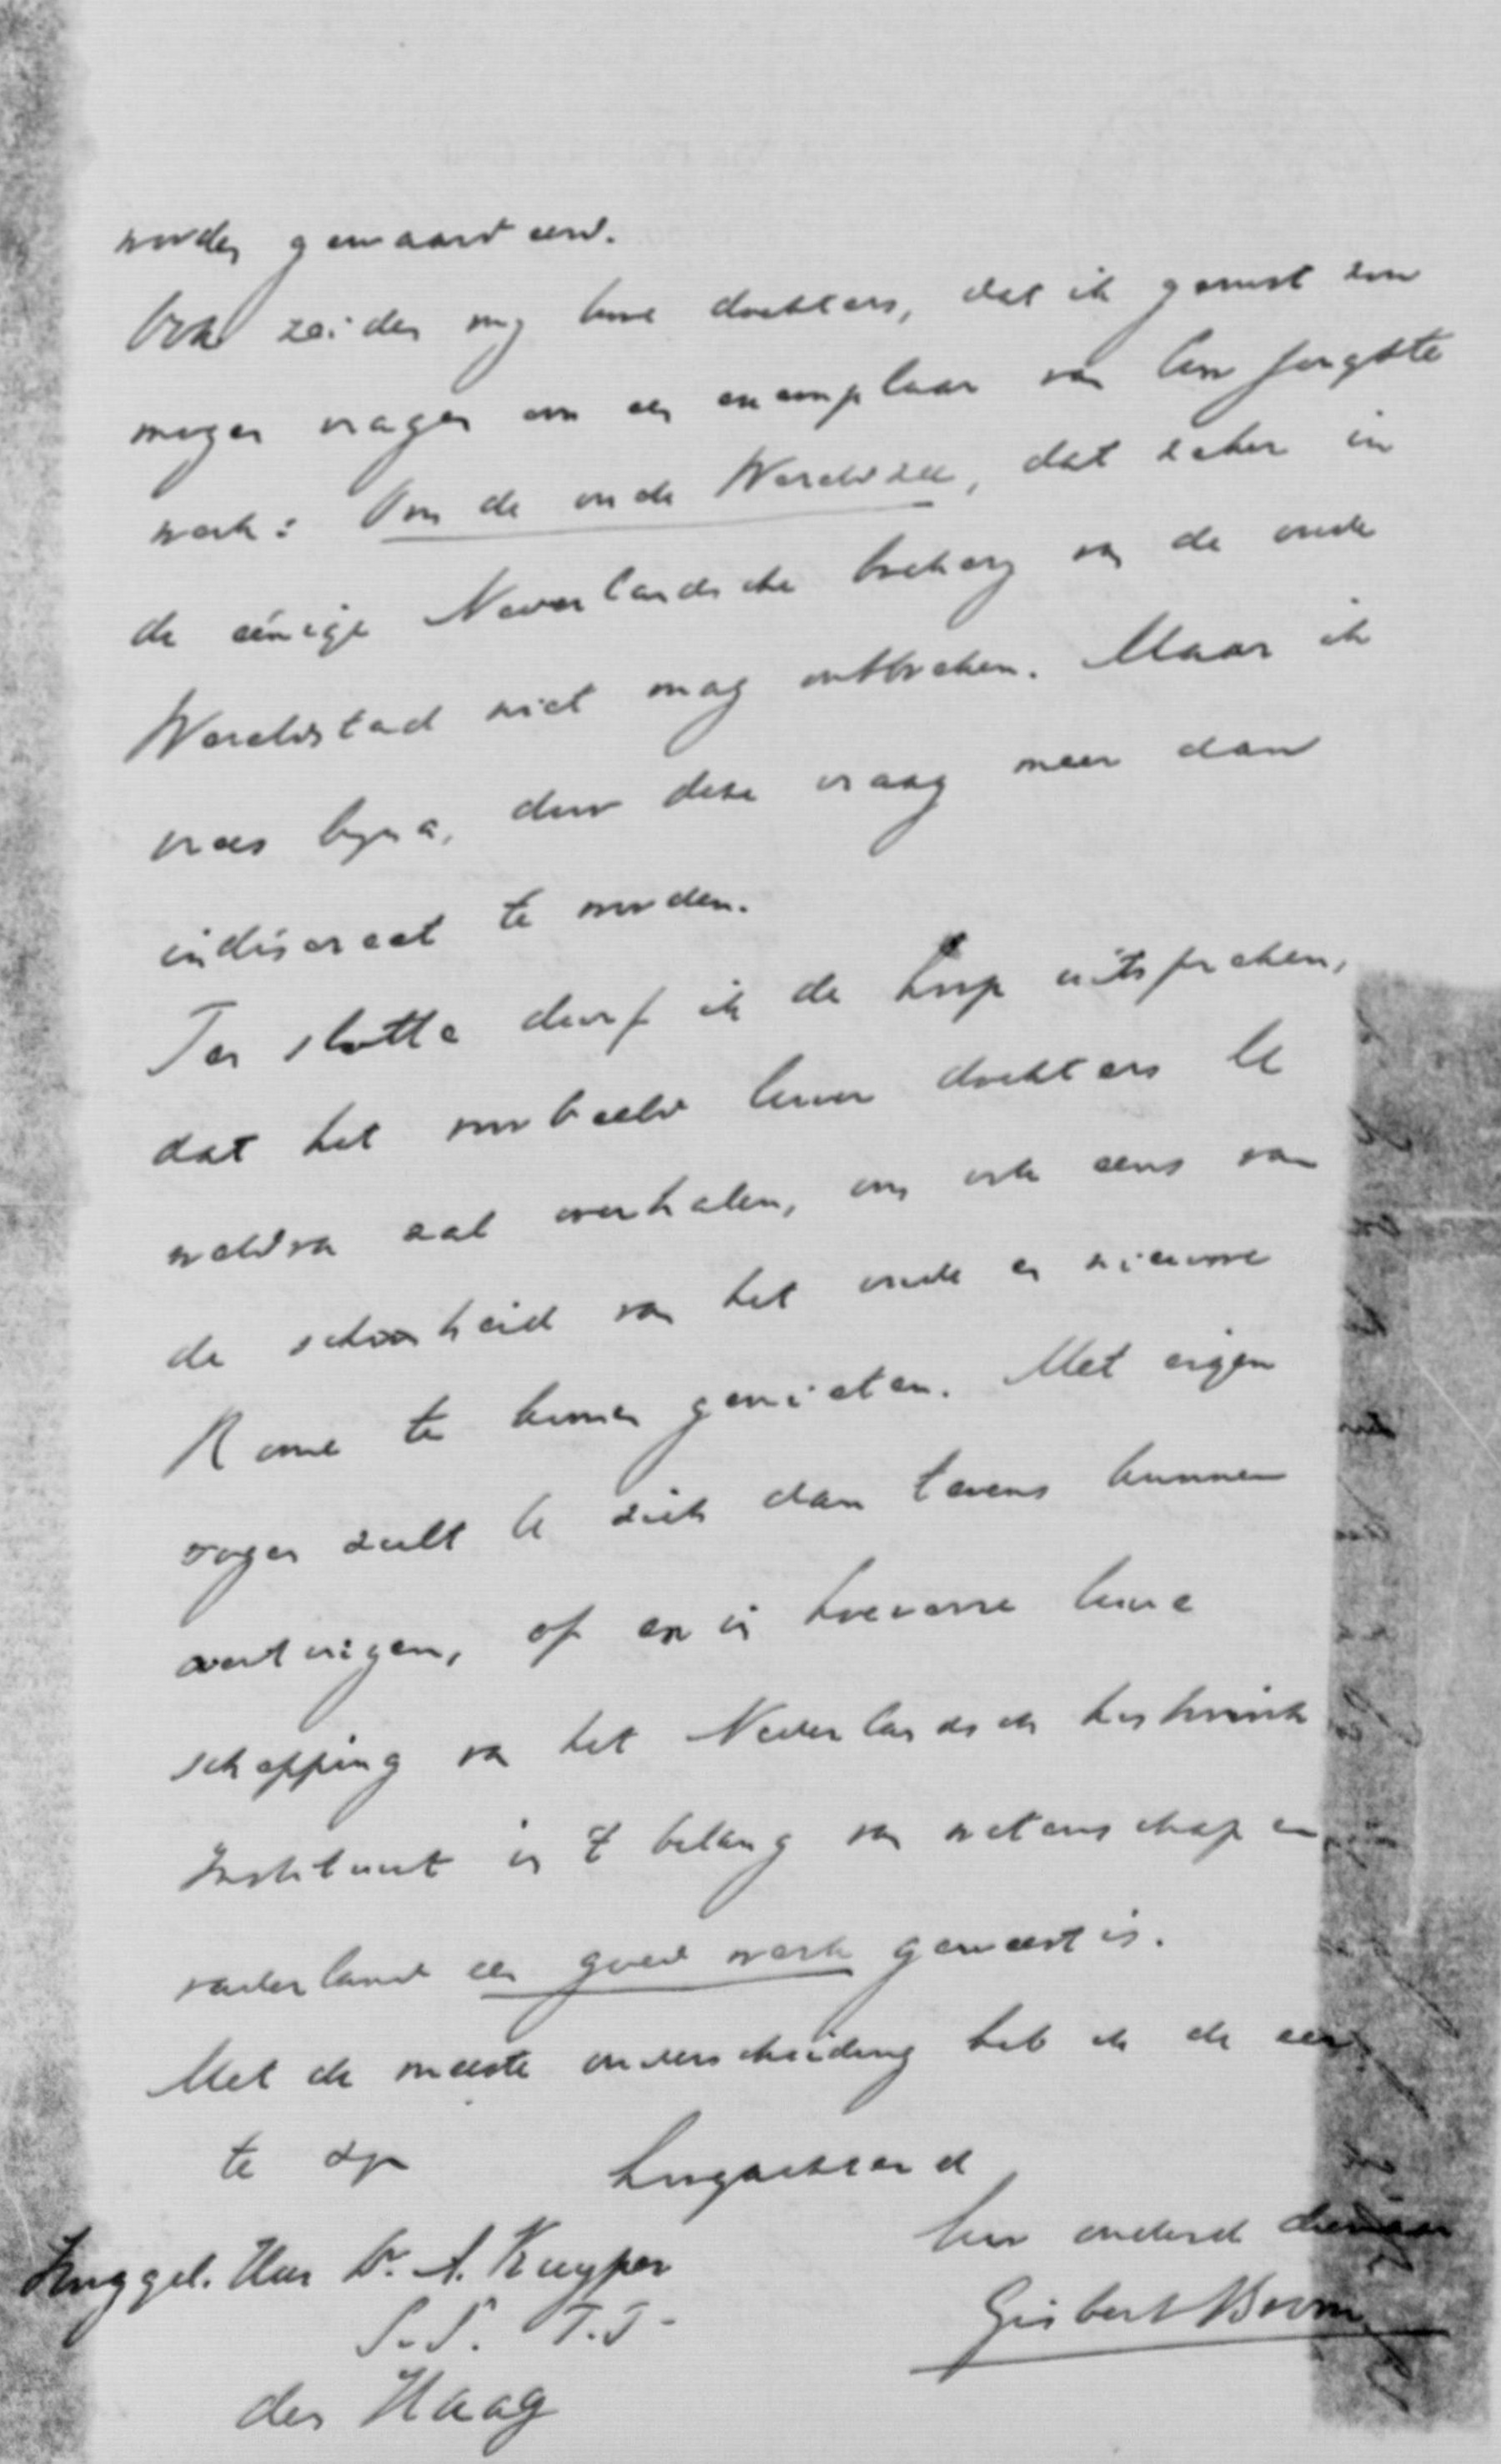 worden gewaardeerd.
Ook zeiden mij Uwe dochters, dat ik gerust zou
mogen vragen om een exemplaar van Uw jongste
werk: Om de oude Wereldzee, dat zeker in
de éénige Nederlandsche boekerij van de oude
Wereldstad niet mag ontbreken. Maar ik
vrees bijna, door deze vraag meer dan
indiscreet te worden.
Ten slotte durf ik de hoop uitspreken,
dat het voorbeeld Uwer dochters U
weldra zal overhalen, om ook eens van
de schoonheid van het oude en nieuwe
Rome te komen genieten. Met eigen
oogen zult U zich dan tevens kunnen
overtuigen, of en in hoeverre Uwe
schepping van het Nederlandsch historisch
Instituut in 't belang van wetenschap en
vaderland een goed werk geweest is.
Met de meeste onderscheiding heb ik de eer
te zijn Hoogachtend
Uw onderd dienaar
Hooggel. Heer Dr. A. Kuyper
Gisbert Brom
S.S. T.T.
den Haag